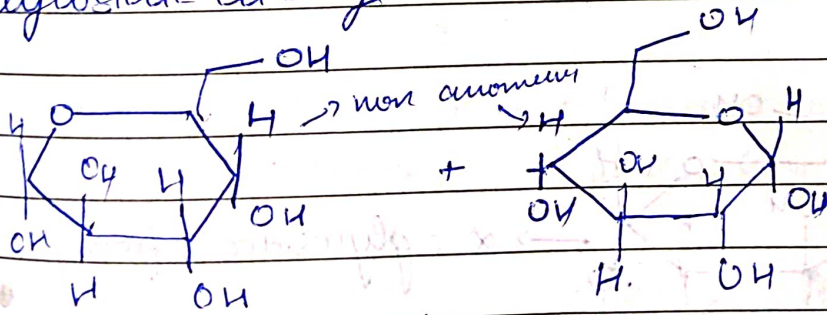 OH
OH
H O H → non anomeric → H O H
OH H + OH H
OH OH OH OH
H OH H. OH